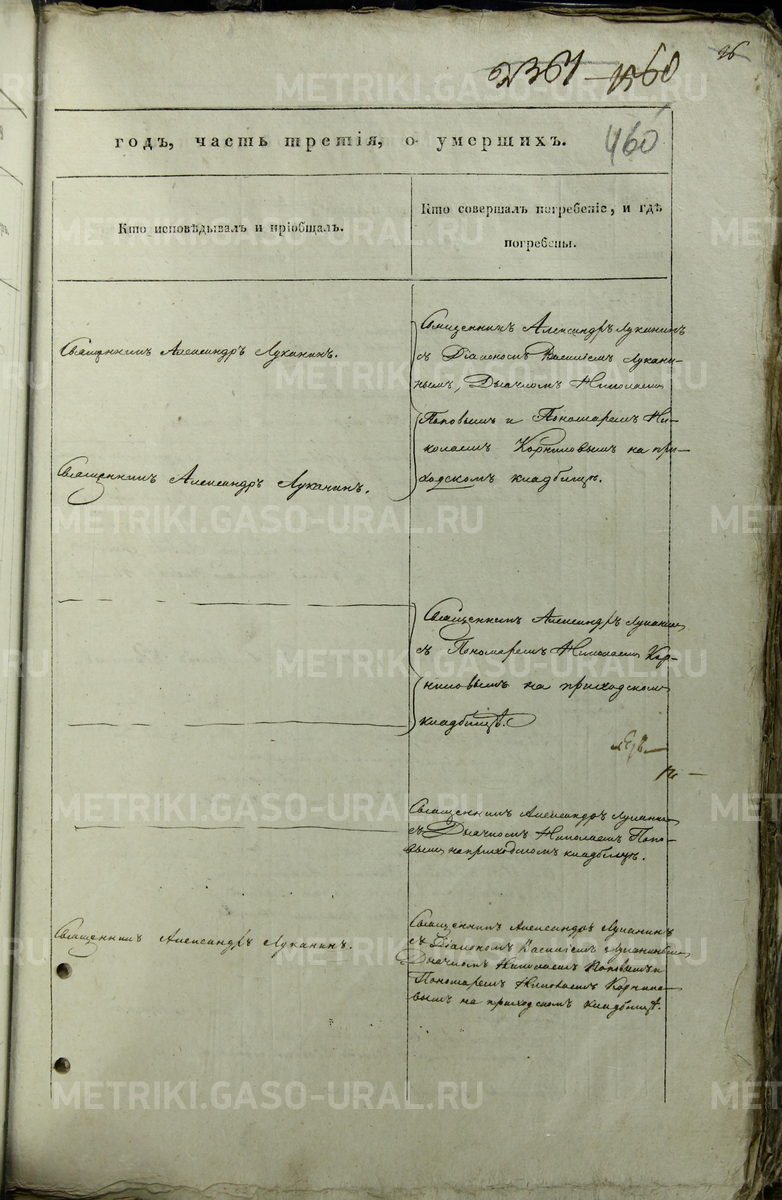 26
2361 - 1560
460
годъ, часть третія, о умершихъ.
Кто исповѣдывалъ и пріобщалъ.
Кто совершалъ погребеніе, и гдѣ
погребены.
Священникъ Александръ Луканинъ.
Священникъ Александръ Луканинъ
съ Діакономъ Василіемъ Лукани-
нымъ, Дьячкомъ Николаемъ
Поповымъ и Пономаремъ Ни-
колаемъ Корниловымъ на при-
ходскомъ кладбищѣ.
Священникъ Александръ Луканинъ.
Священникъ Александръ Луканинъ
съ Пономаремъ Николаемъ Кор-
ниловымъ на приходскомъ
кладбищѣ.
Священникъ Александръ Луканинъ
съ Дьячкомъ Николаемъ Попо-
вымъ на приходскомъ кладбищѣ.
Священникъ Александръ Луканинъ.
Священникъ Александръ Луканинъ
съ Діакономъ Василіемъ Луканинымъ
Дьячкомъ Николаемъ Поповымъ и
Пономаремъ Николаемъ Корнило-
вымъ на приходскомъ кладбищѣ.
METRIKI.GASO-URAL.RU